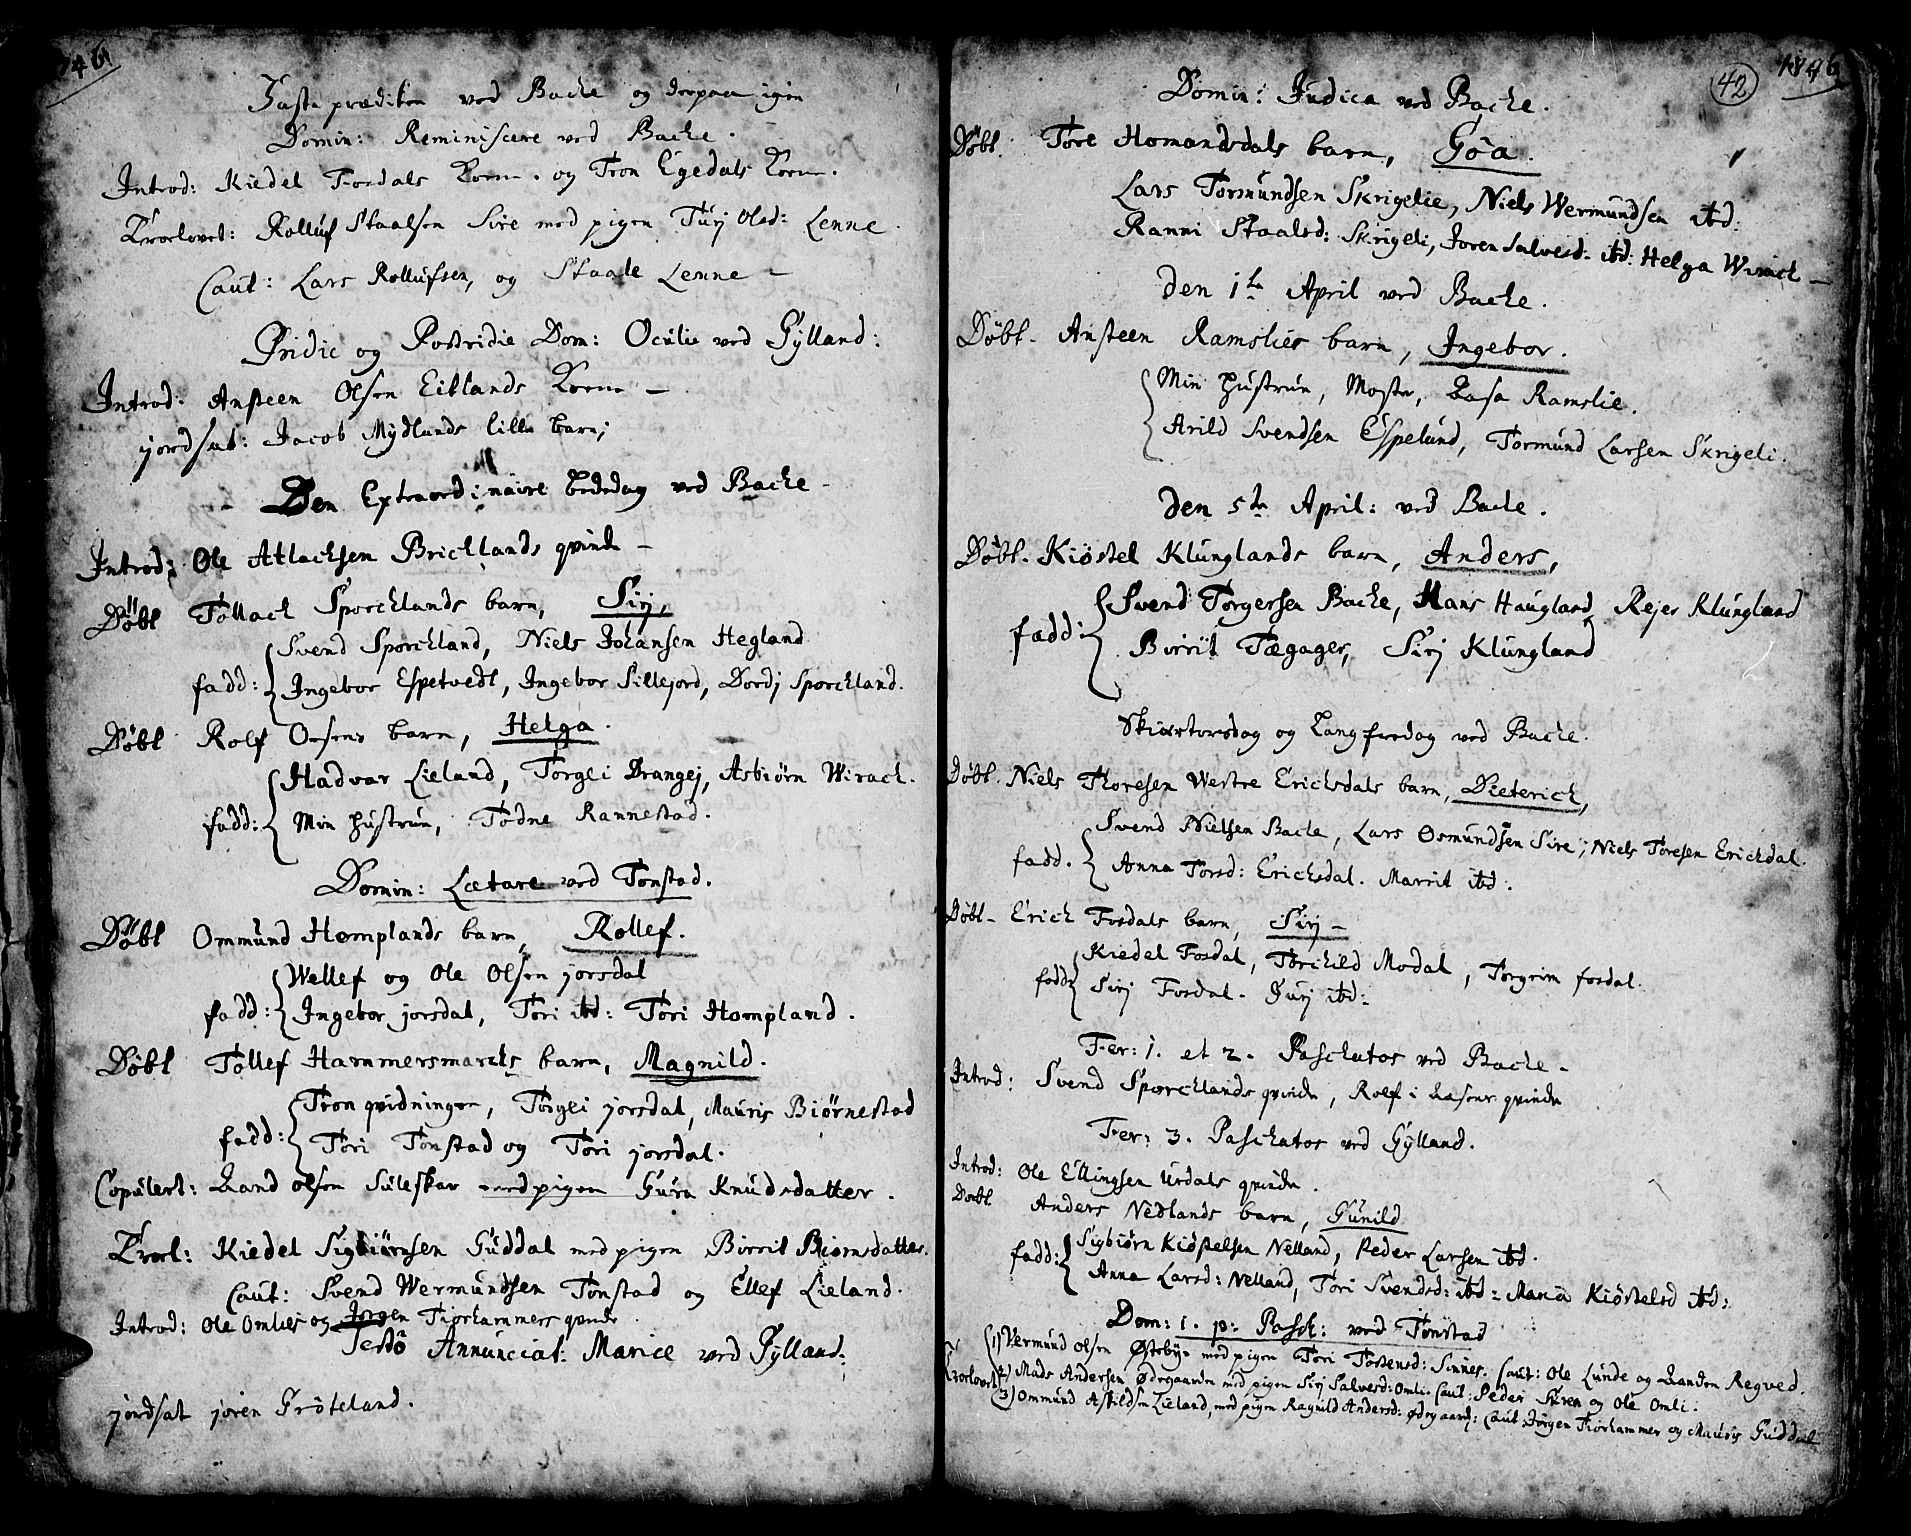 1746
Faste prædiken ved Bache og derpaa igien
Domin: Reminiscere ved Bache.
Introd: Kiedel Fosdals Kone. og Tron Egedals Kone.
Trolovet: Rolluf Staalsen Sire med pigen Turj Olsd: Lenne.
Caut: Lars Rollufsen, og Staale Lenne -
Pridie og Postridie Dom: Oculie ved Gylland:
Introd: Ansteen Olsen Eitlands Kone -
jordsat: Jacob Mydlands lille barn;
Den Extraordinaire bededag ved Bache -
Introd: Ole Atlachsen Bricklands qvinde -
Döbt Tollach Sporcklands barn, Sirj,
Svend Sporckland, Niels Johansen Hegland
fadd: Ingebor Espetvedt, Ingebor Sillejord, Dordj Sporckland.
Döbt Rolf Oesens barn, Helga.
Hadvar Lieland, Torgli Drangej, Asbiørn Wirach.
fadd: Min Hustrue, Todne Rannestad.
Domin: Lætare ved Tonstad.
Döbt Ommund Homplands barn, Rollef.
Wellef og Ole Olsen jorsdal
fadd: Ingebor jorsdal, Tori ibd: Tori Hompland.
Döbt Tollef Hammersmarcks barn, Magnild.
Tron qvidninger, Torgli jorsdal, Mauris Biørnestad
fadd: Tori Tonstad og Tori jorsdal.
Copulert: Rand olsen Suleskar med pigen Guro Knudsdatter.
Trol: Kiedel Sigbiörnsen Guddal med pigen Birrit Biørnsdatter.
Caut: Svend Wermundsen Tonstad og Ellef Lieland.
Introd: Ole Omlies og Jorgen Fiorhammers qvinde
Festo Annunciat: Mariæ ved Gylland:
jordsat joren Grøteland.
42
1746
Domin: Judica ved Bache.
Döbt. Tore Homandsdals barn, Göa.
Lars Tormundsen Skrigelie, Niels Wermundsen ibd:
Ranni Staalsd: Skrigeli, Joren Salvesd. ibd: Helga Wirach -
den 1te April ved Bache.
Döbt - Ansteen Ramslies barn, Ingebor.
Min Hustrue, Moster, Aasa Ramslie.
Arild Svendsen Espelund, Tormund Larsen Skrigeli.
den 5te April: ved Bache.
Döbt - Kiøstel Klunglands barn, Anders,
Svend Torgersen Bache, Hans Haugland, Rejer Klungland
fadd: Birrit Tægager, Sirj Klungland
Skiærtorsdag og Langfredag ved Bache.
Döbt. Niels Thoresen Westre Ericksdals barn, Dieterich,
Svend Nielsen Bache, Lars Osmundsen Sire; Niels Toresen Erickdal.
fadd. Anna Torsd: Ericksdal. Marrit ibd:
Döbt - Erick Fosdals barn, Sirj -
Kiedel Fosdal, Torchild Modal, Torgrim fosdal.
fadd: Sirj Fosdal. Gurj ibd:
Fer: 1. et 2. Paschatos ved Bache -
Introd: Svend Sporcklands qvinde, Rolf i Aasens qvinde
Fer: 3. Paschatos ved Gylland.
Introd: Ole Ellingsen Urdals qvinde.
Döbt Anders Nedlands barn, Gunild
Sigbiørn Kiøstelsen Nelland, Peder Larsen ibd.
fadd: Anna Larsd: Nelland, Tori Svendsd: ibd: Maria Kiøstelsd ibd:
Dom: 1. p: Pasch: ved Tonstad
1) Wermund olsen Østebye med pigen Tori Tostensd: Sinnes. Caut: Ole Lunde og Randen Regved.
Trolovet 2) Mads Andersen Ødegaarden med pigen Sirj Salvesd: Omli. Caut: Peder Guren og Ole Omli:
3) Ommund Askildsen Lieland, med pigen Ragnild Andersd: Ødegaard: Caut Jörgen Fiorhammer og Mauris Guddal